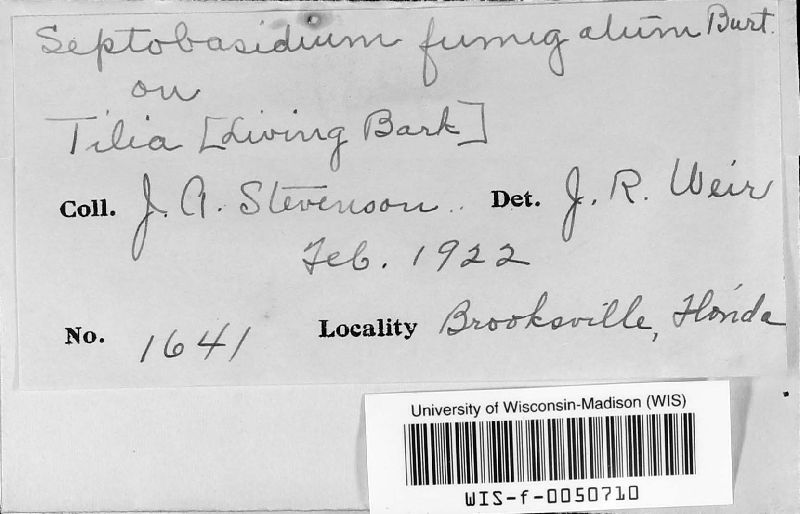 Septobasidium fumigatum Burt.
on
Tilia [Living Bark]
Coll. J. A. Stevenson. Det. J. R. Weir
Feb. 1922
No. 1641 Locality Brooksville, Florida
University of Wisconsin-Madison (WIS)
WIS-f-0050710